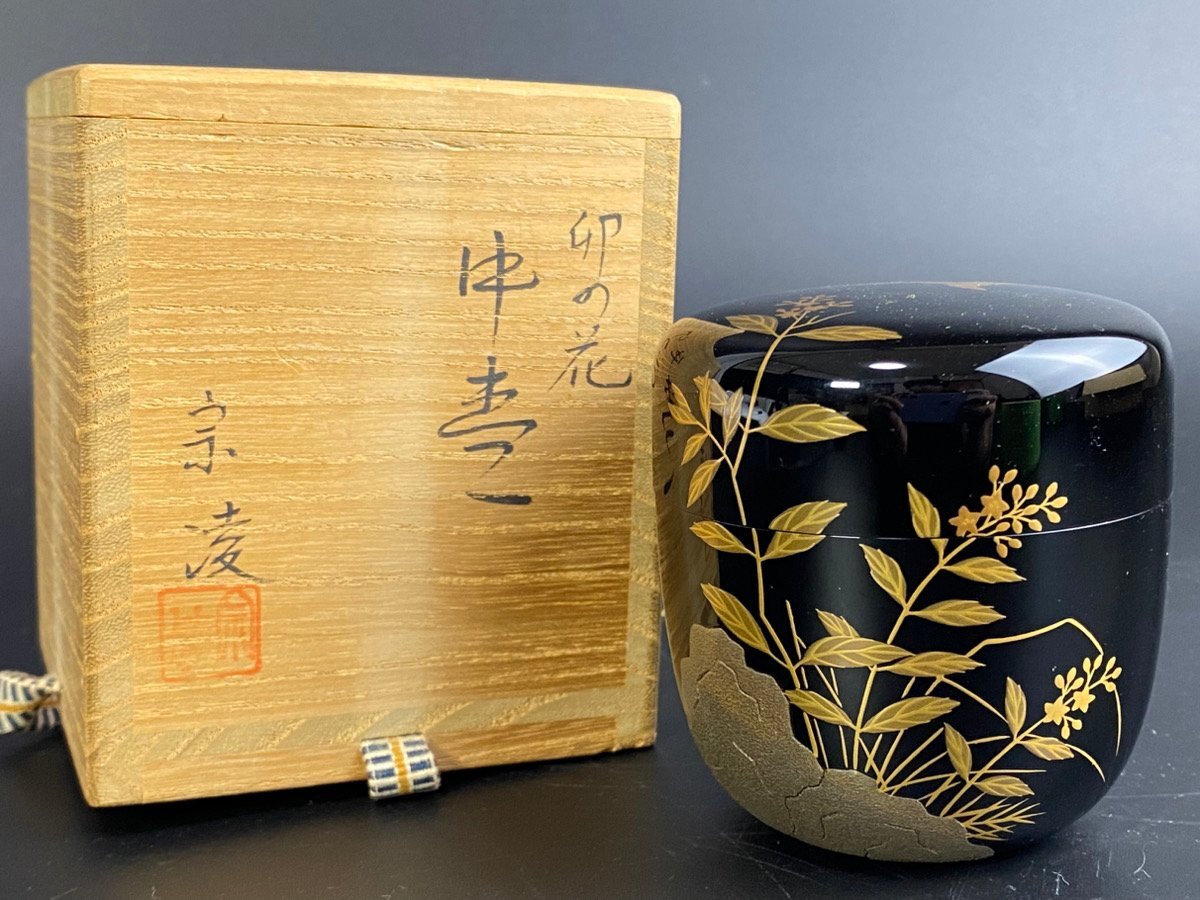 卯の花
中棗
宗凌